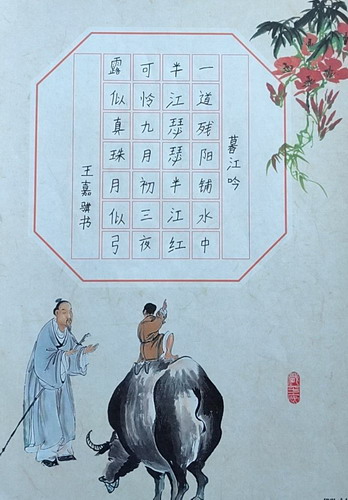 暮江吟
一道残阳铺水中
半江瑟瑟半江红
可怜九月初三夜
露似真珠月似弓
王嘉书